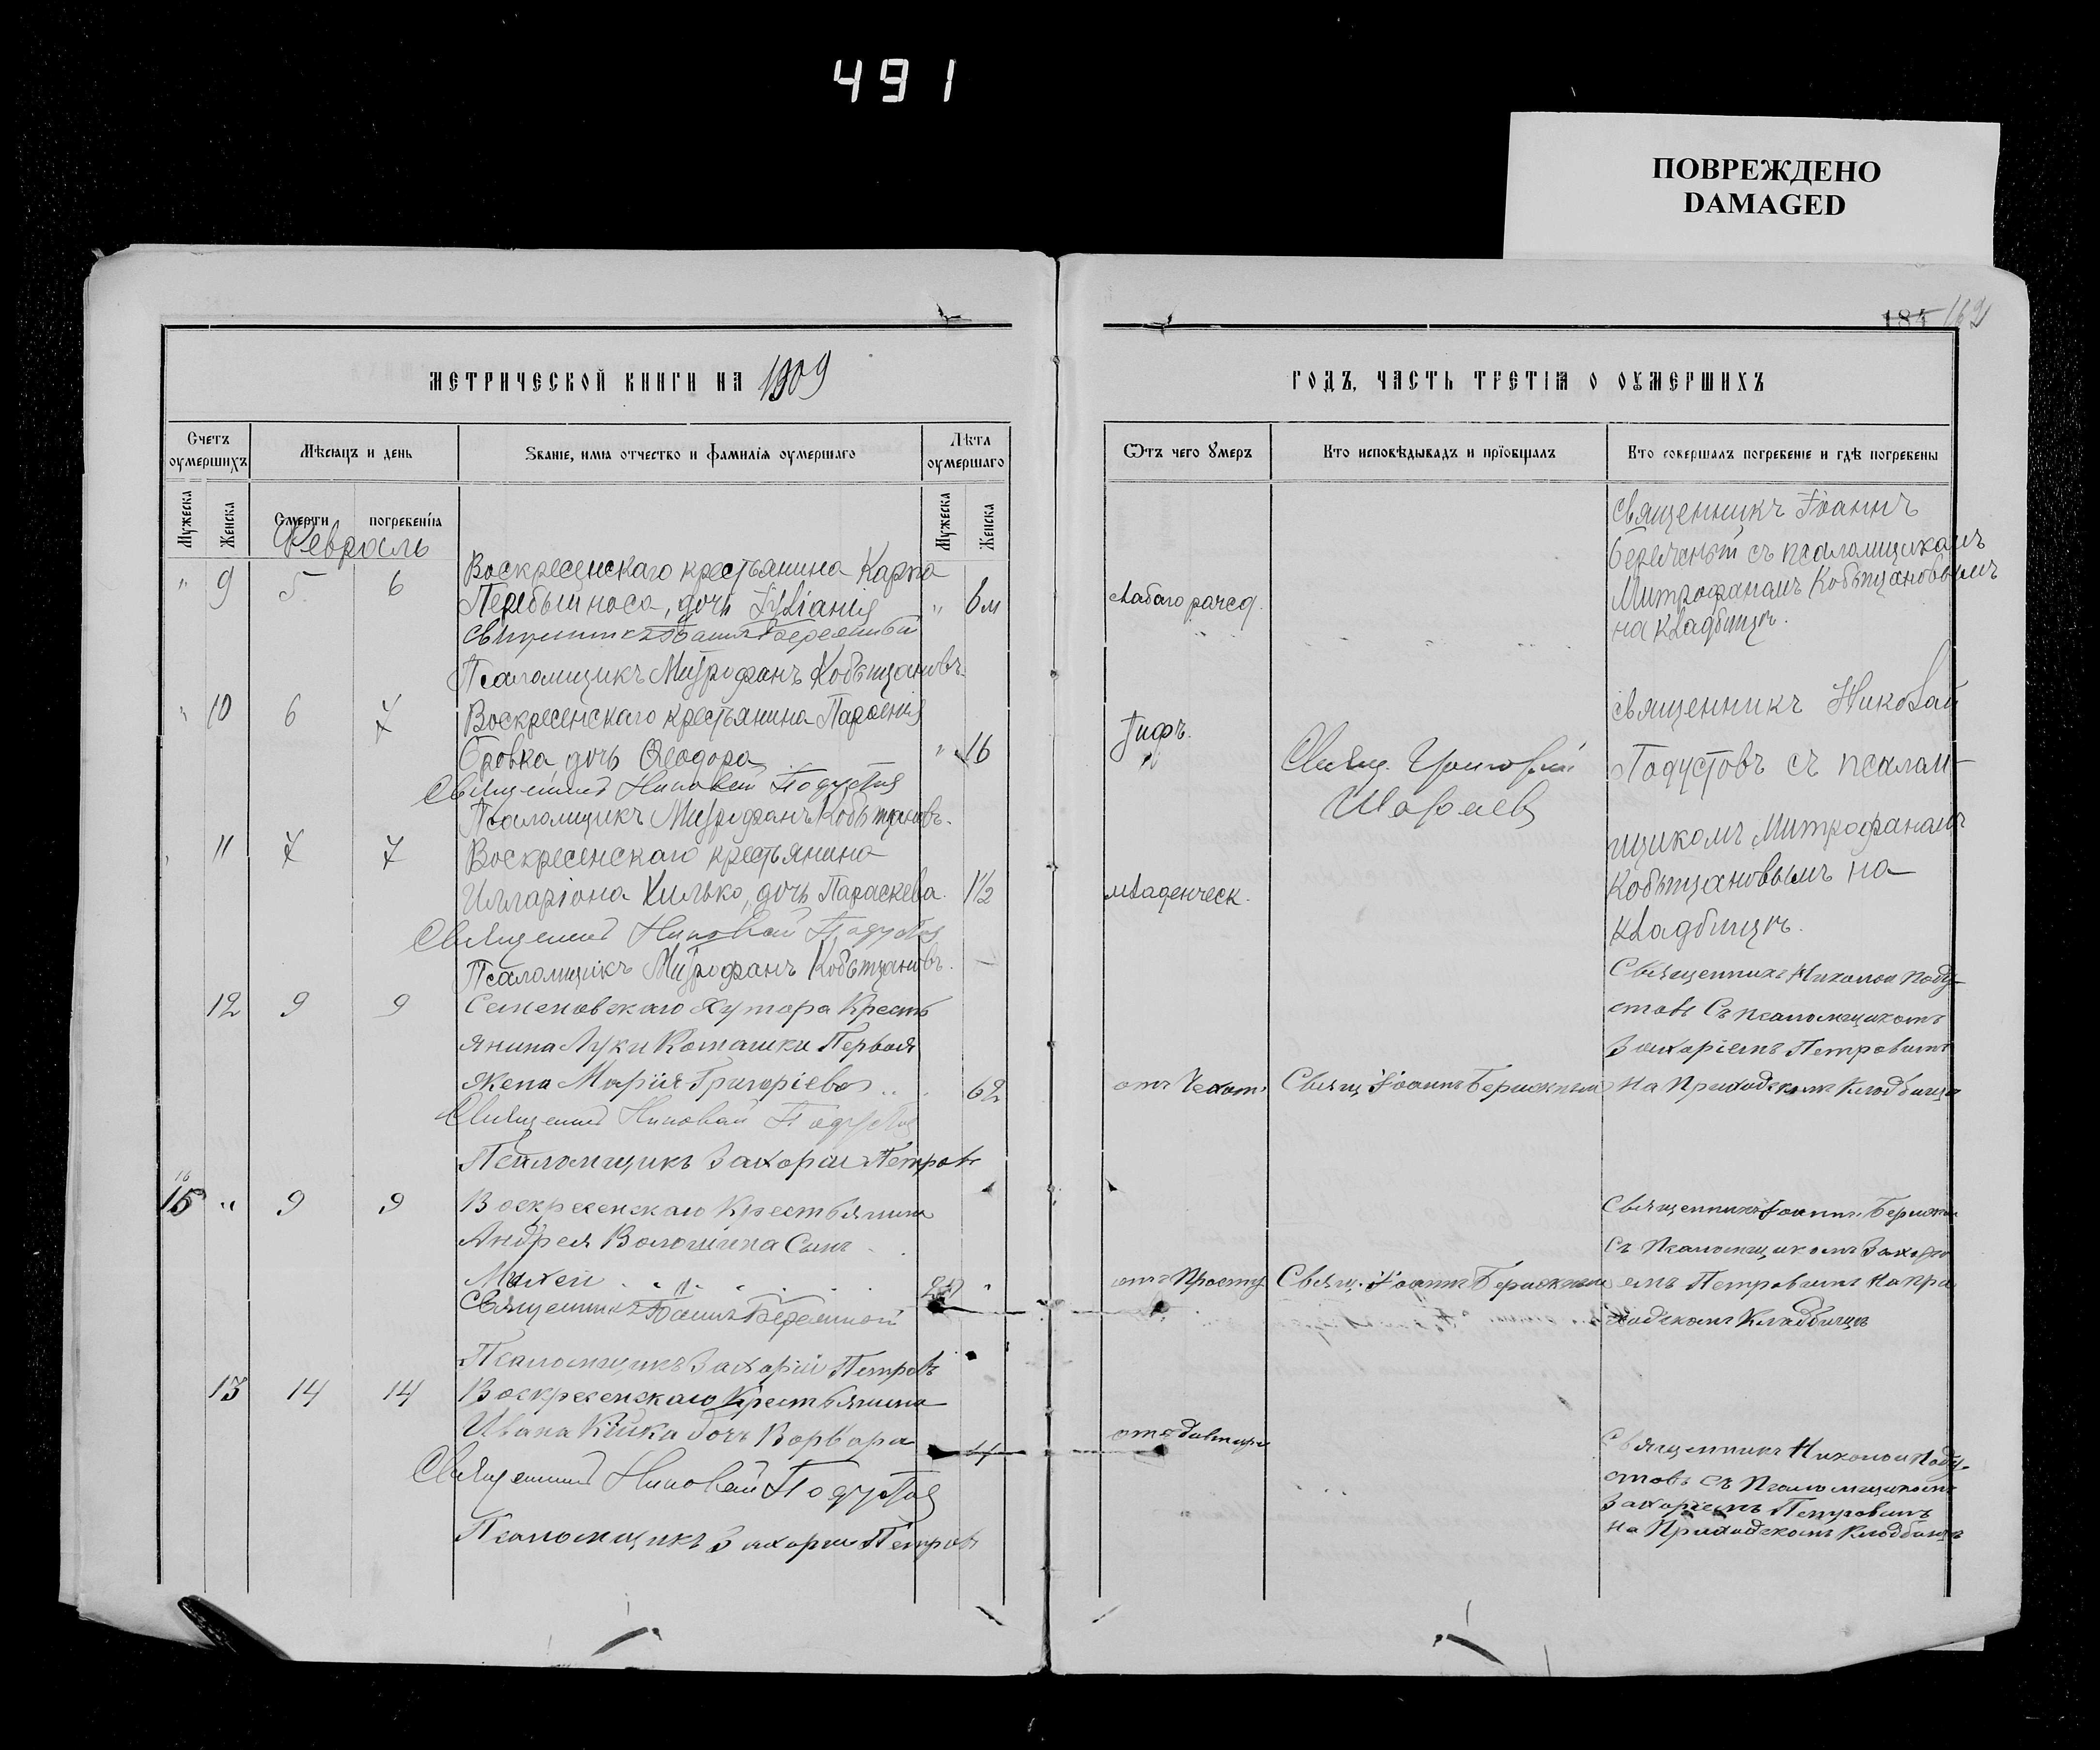 491
ПОВРЕЖДЕНО
DAMAGED
184 162
МЕТРИЧЕСКОЙ КНИГИ НА 1909
ГОДЪ, ЧАСТЬ ТРЕТІЯ О ОУМЕРШИХЪ
Счетъ оумершихъ
Мѣсяцъ и день
Званіе, имя отчество и фамилія оумершаго
Лѣта оумершаго
Мужеска
Женска
Смерти
погребенія
Мужеска
Женска
Ѿтъ чего оумеръ
Кто исповѣдывалъ и пріобщалъ
Кто совершалъ погребеніе и гдѣ погребены
Февраль
" 9 5 6
Воскресенскаго крестьянина Карпа
Перебыйноса, дочь Іуліанія " 6м
Священникъ Іоаннъ
Псаломщикъ Митрофанъ Кобыщановъ
слабаго
Священникъ Іоаннъ
съ псаломщикомъ
Митрофаномъ Кобыщановымъ
на кладбищѣ.
" 10 6 7
Воскресенскаго крестьянина
дочь Ѳеодора " 16
Священникъ Николай Подустов
Псаломщикъ Митрофанъ Кобыщановъ.
Тифъ.
Священникъ Николай
Подустовъ съ псалом-
щикомъ Митрофаномъ
Кобыщановымъ на
кладбищѣ.
11 7 7
Воскресенскаго крестьянина
Илларіона Хилько, дочь Параскева. 1½
Священникъ Николай Подустов
Псаломщикъ Митрофанъ Кобыщановъ.
младенческ.
12 9 9
Семеновскаго Хутора Кресть
янина Луки Коташки Первая
жена Марія Григоріева 62
Священникъ Николай Подустов
Псаломщикъ Захарій Петровъ
отъ Чехот.
Свящ Іоаннъ
Священникъ Николай Поду-
стовъ Съ псаломщикомъ
Захаріемъ Петровымъ
на Приходскомъ Кладбищѣ
16
15 " 9 9
Воскресенскаго Крестьянина
Андрея Волошина Сынъ
Михей
Священникъ Іоаннъ
Псаломщикъ Захарій Петровъ
отъ Просту
Свящ. Іоаннъ
Священникъ Іоаннъ
съ Псаломщикомъ Захарі
емъ Петровымъ на при
ходскомъ Кладбищѣ
13 14 14
Воскресенскаго Крестьянина
Ивана дочь Варвара 4
Священникъ Николай Подустов
Псаломщикъ Захарій Петровъ
Священникъ Николай Поду-
стовъ съ Псаломщикомъ
Захаріемъ Петровымъ
на Приходскомъ Кладбищѣ